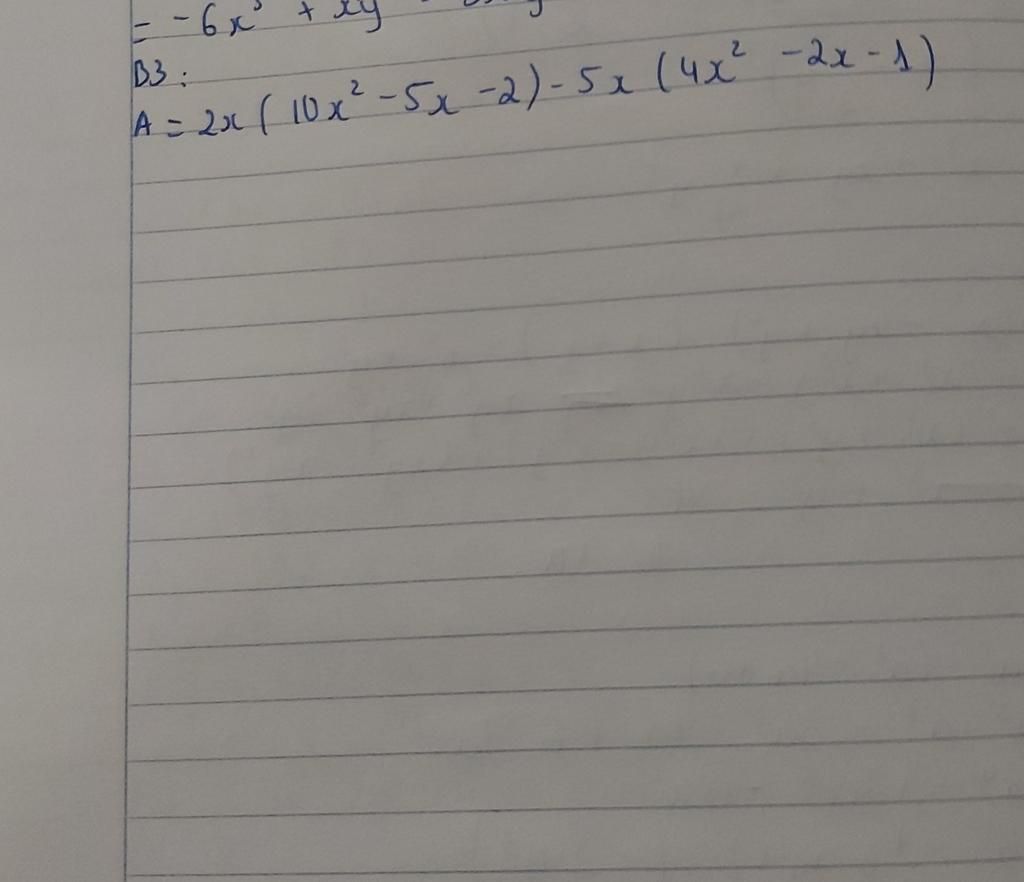 = -6x³ + xy
B3:
A = 2x( 10x² -5x -2) - 5x (4x² -2x -1)